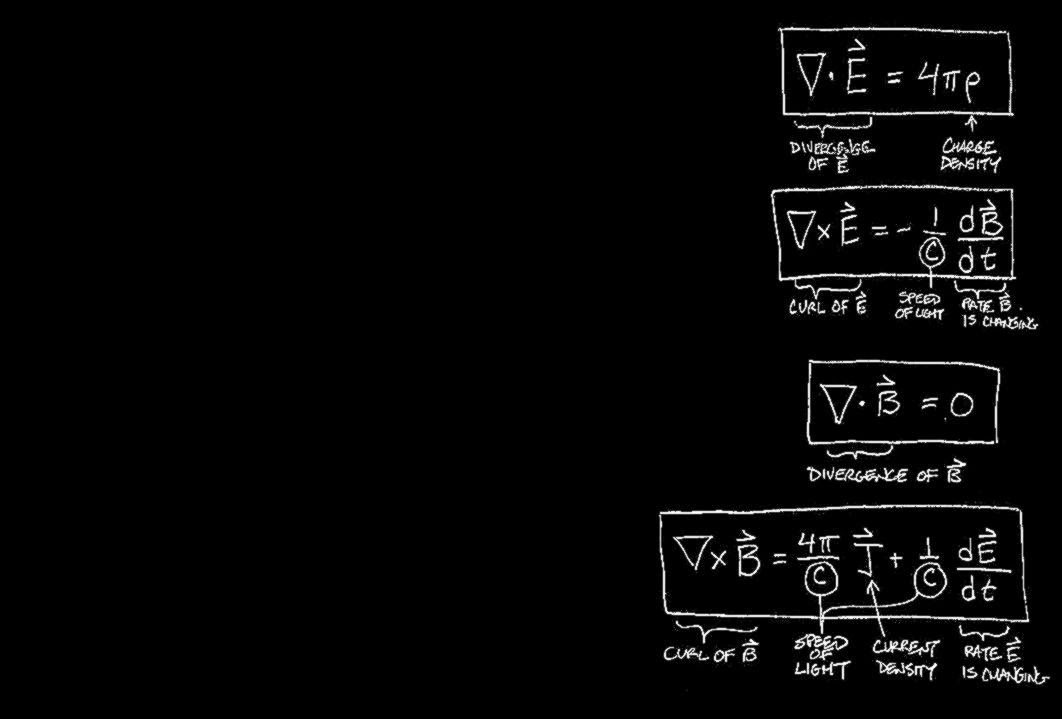 ∇ · E⃗ = 4πρ
DIVERGENCE
OF E⃗
CHARGE
DENSITY
∇ × E⃗ = - 1/c dB⃗/dt
CURL OF E⃗
SPEED
OF LIGHT
RATE B⃗
IS CHANGING
∇ · B⃗ = 0
DIVERGENCE OF B⃗
∇ × B⃗ = 4π/c J⃗ + 1/c dE⃗/dt
CURL OF B⃗
SPEED
OF
LIGHT
CURRENT
DENSITY
RATE E⃗
IS CHANGING